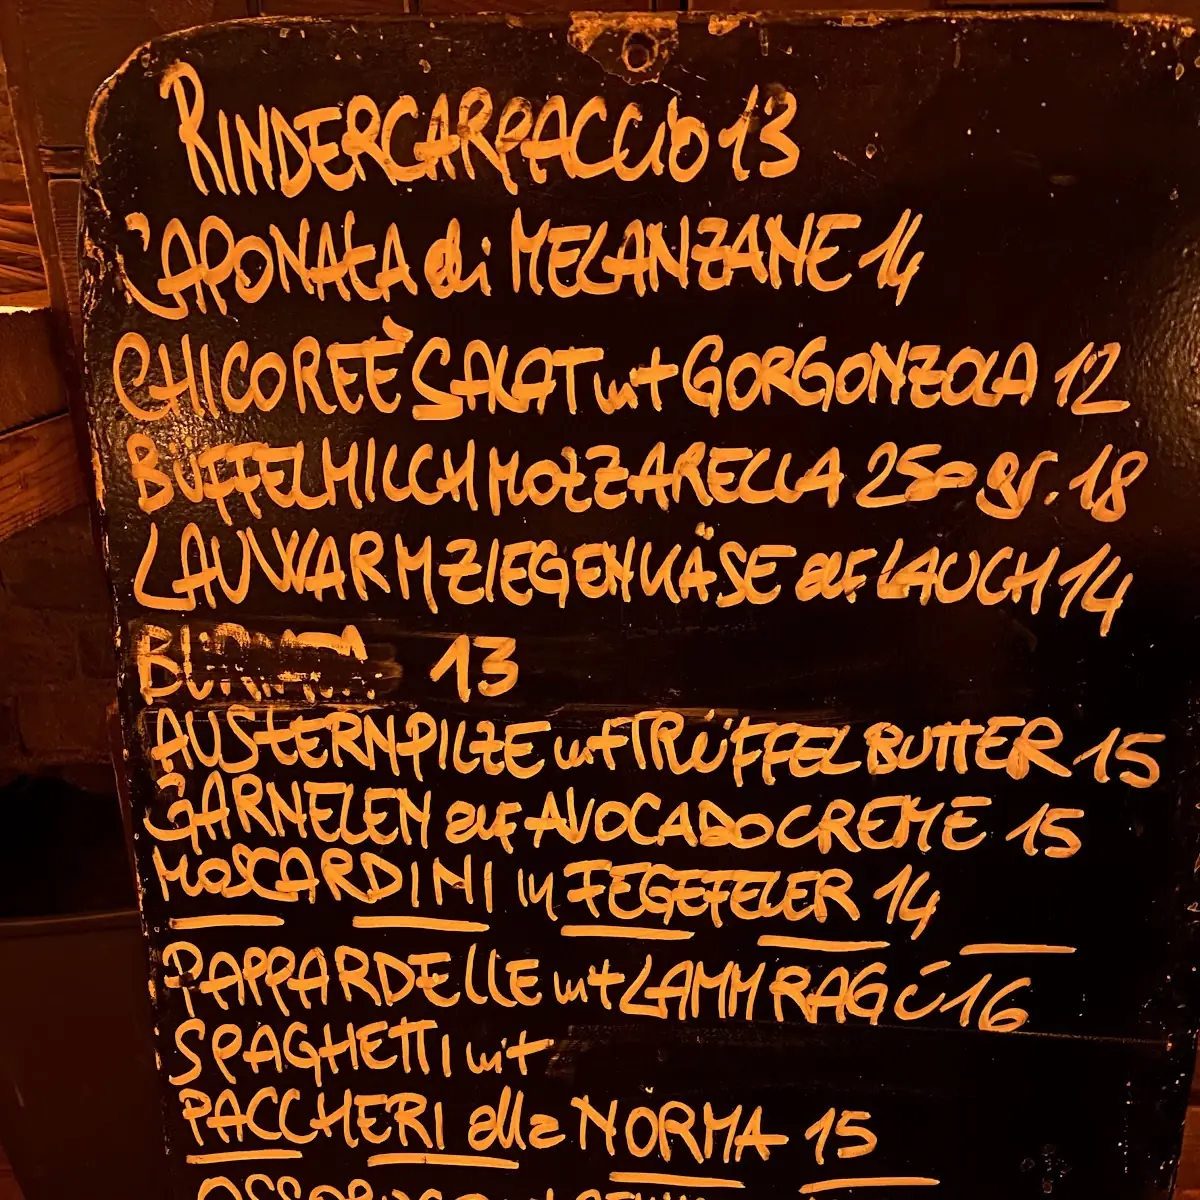 RINDERCARPACCIO 13
CAPONATA di MELANZANE 14
CHICOREÈ SALAT mit GORGONZOLA 12
BUFFELMILCH MOZZARELLA 250 gr. 18
LAUWARM ZIEGENKÄSE auf LAUCH 14
13
AUSTERNPILZE mit TRÜFFEL BUTTER 15
GARNELEN auf AVOCADOCREME 15
MOSCARDINI in FEGEFEUER 14
PAPPARDELLE mit LAMM RAGÚ 16
SPAGHETTI mit
PACCHERI alla NORMA 15